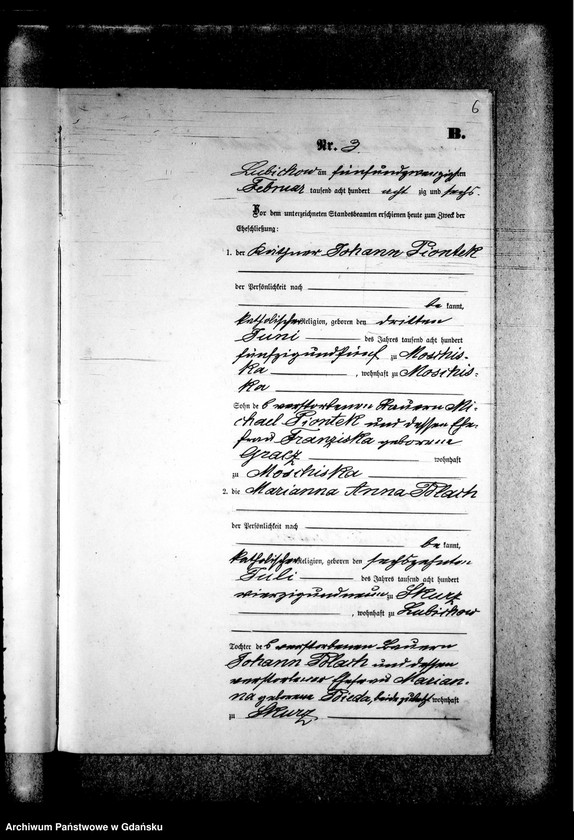 6
B.
Nr. 3.
Lubichow am fünfundzwanzigsten
Februar tausend acht hundert acht zig und sechs.
Vor dem unterzeichneten Standesbeamten erschienen heute zum Zweck der
Eheschließung:
1. der Käthner Johann Piontek
der Persönlichkeit nach
be kannt,
katholischer Religion, geboren den dritten
Juni des Jahres tausend acht hundert
fünfzigundfünf zu Moschis-
ka, wohnhaft zu Moschis-
ka
Sohn des verstorbenen Bauern Mi-
chael Piontek und dessen Ehe-
frau Franziska geborene
Gracz wohnhaft
zu Moschiska
2. die Marianna Anna Polach
der Persönlichkeit nach
be kannt,
katholischer Religion, geboren den sechszehnten
Juli des Jahres tausend acht hundert
vierzigundneun zu Skurz
, wohnhaft zu Lubichow
Tochter des verstorbenen Bauern
Johann Polach und dessen
verstorbener Ehefrau Marian-
na geborene Bieda, beide zuletzt wohnhaft
zu Skurz
Archiwum Państwowe w Gdańsku